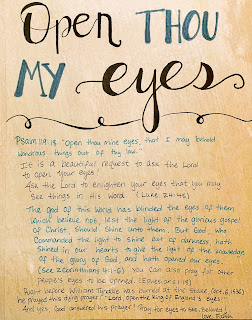 Open THOU
MY eyes
Psalm 119:18 "Open thou mine eyes, that I may behold
wondrous things out of thy law."
It is a beautiful request to ask the Lord
to open your eyes.
Ask the Lord to enlighten your eyes that you may
see things in His Word. (Luke 24:45)
The god of this world has blinded the eyes of them
which believe not lest the light of the glorious gospel
of Christ should shine unto them. But God, who
commanded the light to shine out of darkness, hath
shined in our hearts to give the light of the knowledge
of the glory of God, and hath opened our eyes.
(See 2 Corinthians 4:1-6) You can also pray for other
people's eyes to be opened. (Ephesians 1:18)
Right before William Tyndale was burned at the stake (Oct. 6, 1536)
he prayed this dying prayer: "Lord, open the King of England's eyes."
And yes, God answered his prayer! Pray for eyes to see, beloved!
Love,